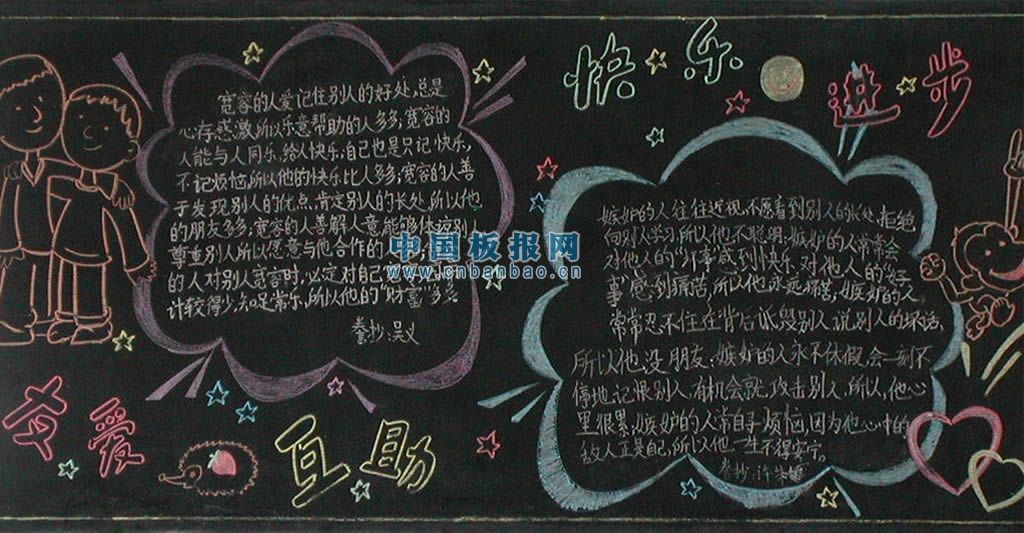 快乐进步
宽容的人爱记住别人的好处,总是
心存感激,所以乐意帮助的人多多;宽容的
人能与人同乐,给人快乐,自己也是只记快乐,
不记烦恼,所以他的快乐比人多多;宽容的人善
于发现别人的优点,肯定别人的长处,所以他
的朋友多多;宽容的人善解人意能够体
尊重别人所以愿意与他合作的
的人对别人宽容时,必定对自己
计较得少,知足常乐,所以他的“财富”多多
誊抄:吴义
中国板报网
www.cnbanbao.cn
嫉妒的人往往近视,不愿看到别人的长处,拒绝
向别人学习,所以他不聪明;嫉妒的人常常会
对他人的“坏事”感到快乐,对他人的“好
事”感到痛苦,所以他永远痛苦;嫉妒的人
常常忍不住在背后诋毁别人说别人的坏话,
所以他没朋友;嫉妒的人永不休假,会一刻不
停地记恨别人,有机会就攻击别人,所以他心
里很累;嫉妒的人常自寻烦恼,因为他心中的
敌人正是自己,所以他一生不得安宁。
誊抄:许
友爱互助